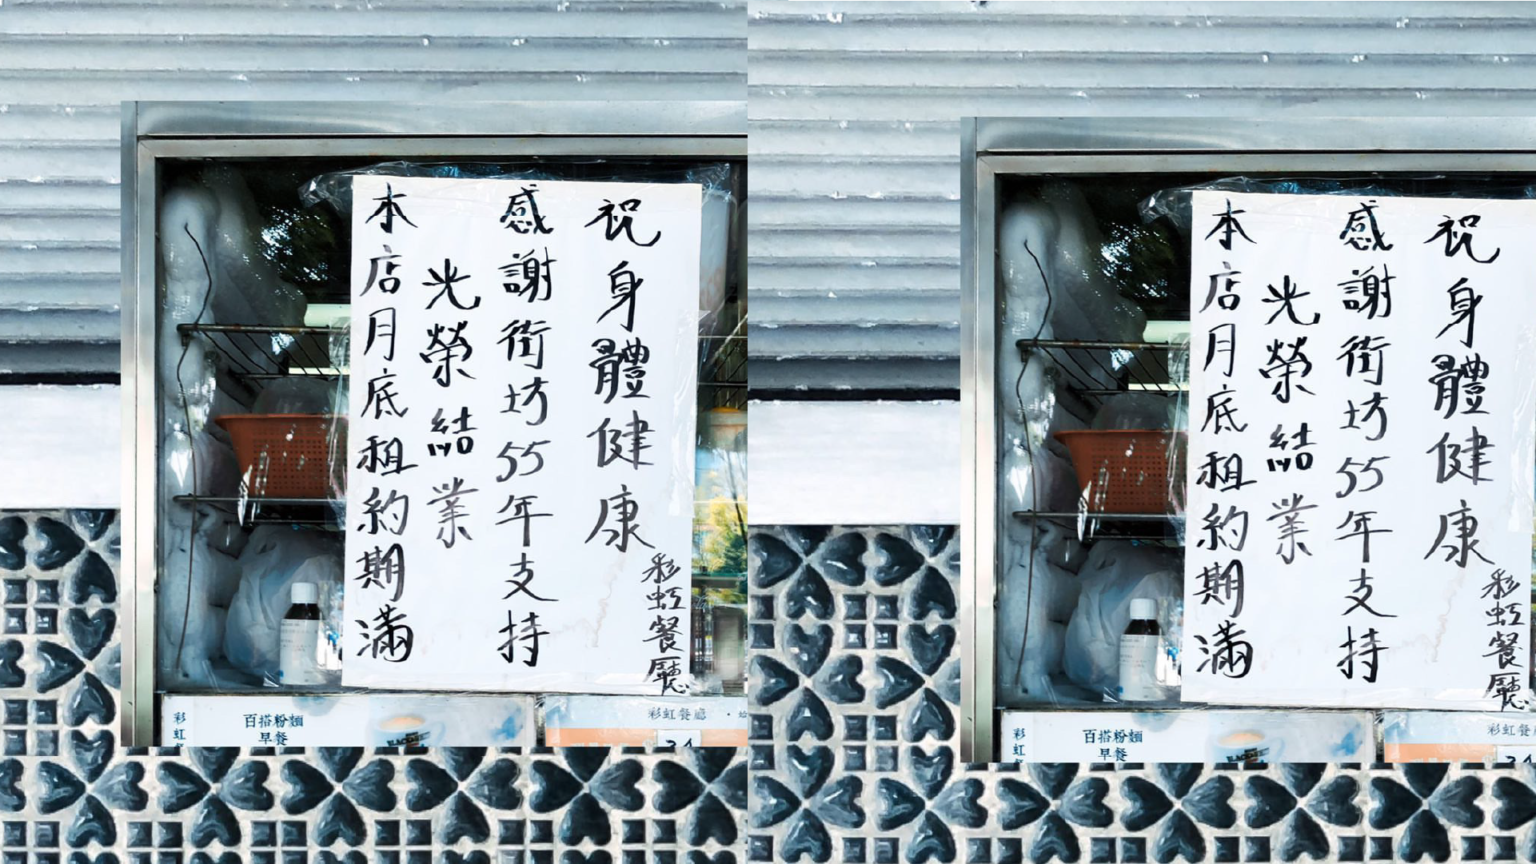 本店月底租約期滿
光榮結業
感謝街坊55年支持
祝身體健康
彩虹餐廳
彩虹
百搭粉麵
早餐
彩虹餐廳
本店月底租約期滿
光榮結業
感謝街坊55年支持
祝身體健康
彩虹餐廳
彩虹
百搭粉麵
早餐
彩虹餐